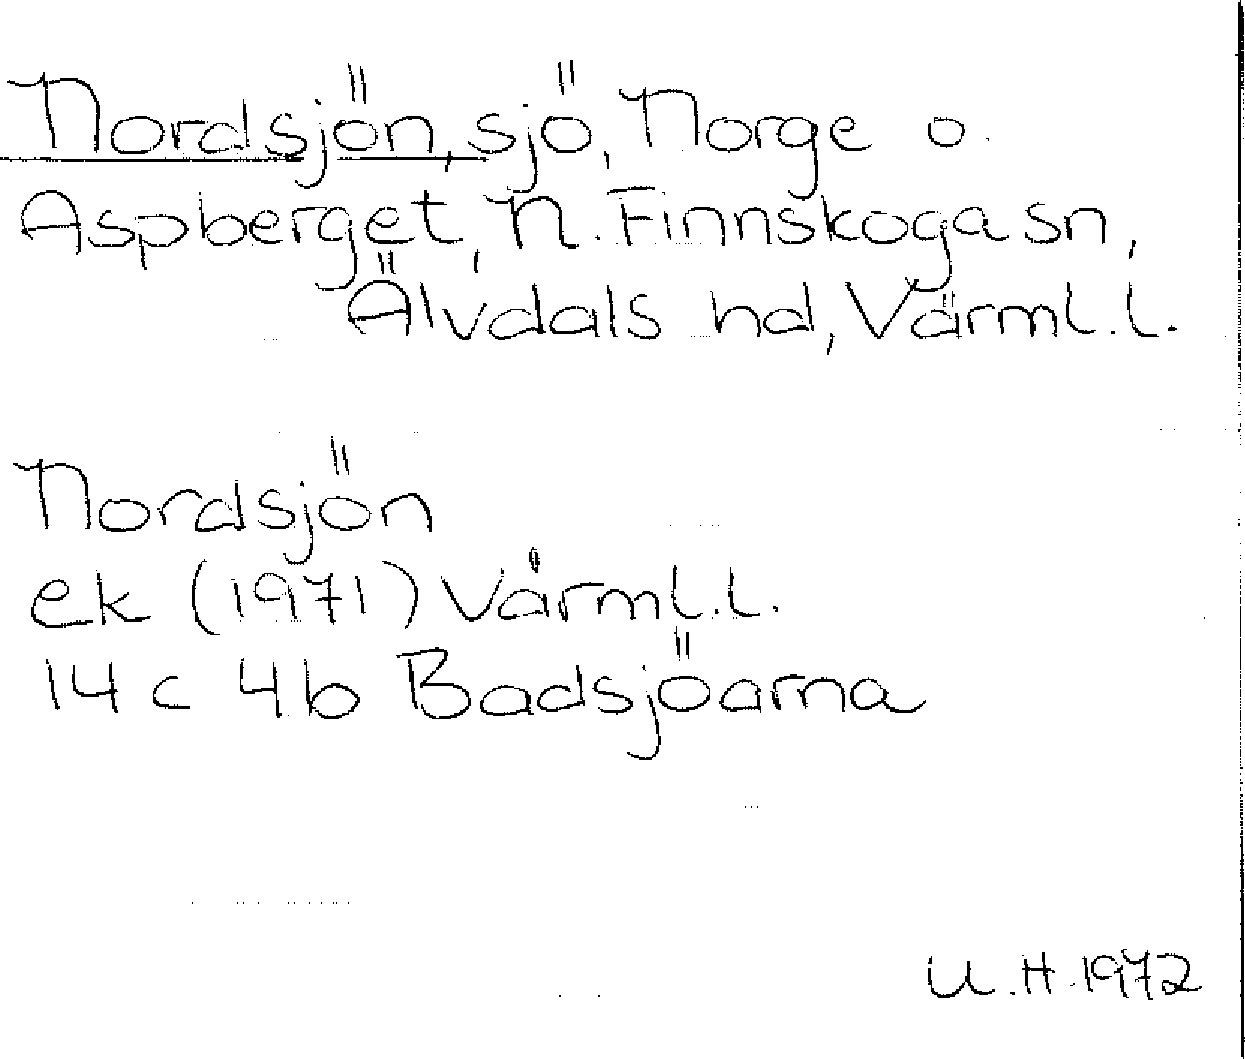 Nordsjön, sjö, Norge o.
Aspberget, N. Finnskoga sn,
Älvdals hd, Värml. l.
Nordsjön
ek (1971) Värml. l.
14 c 4b Badsjöarna
U. H. 1972